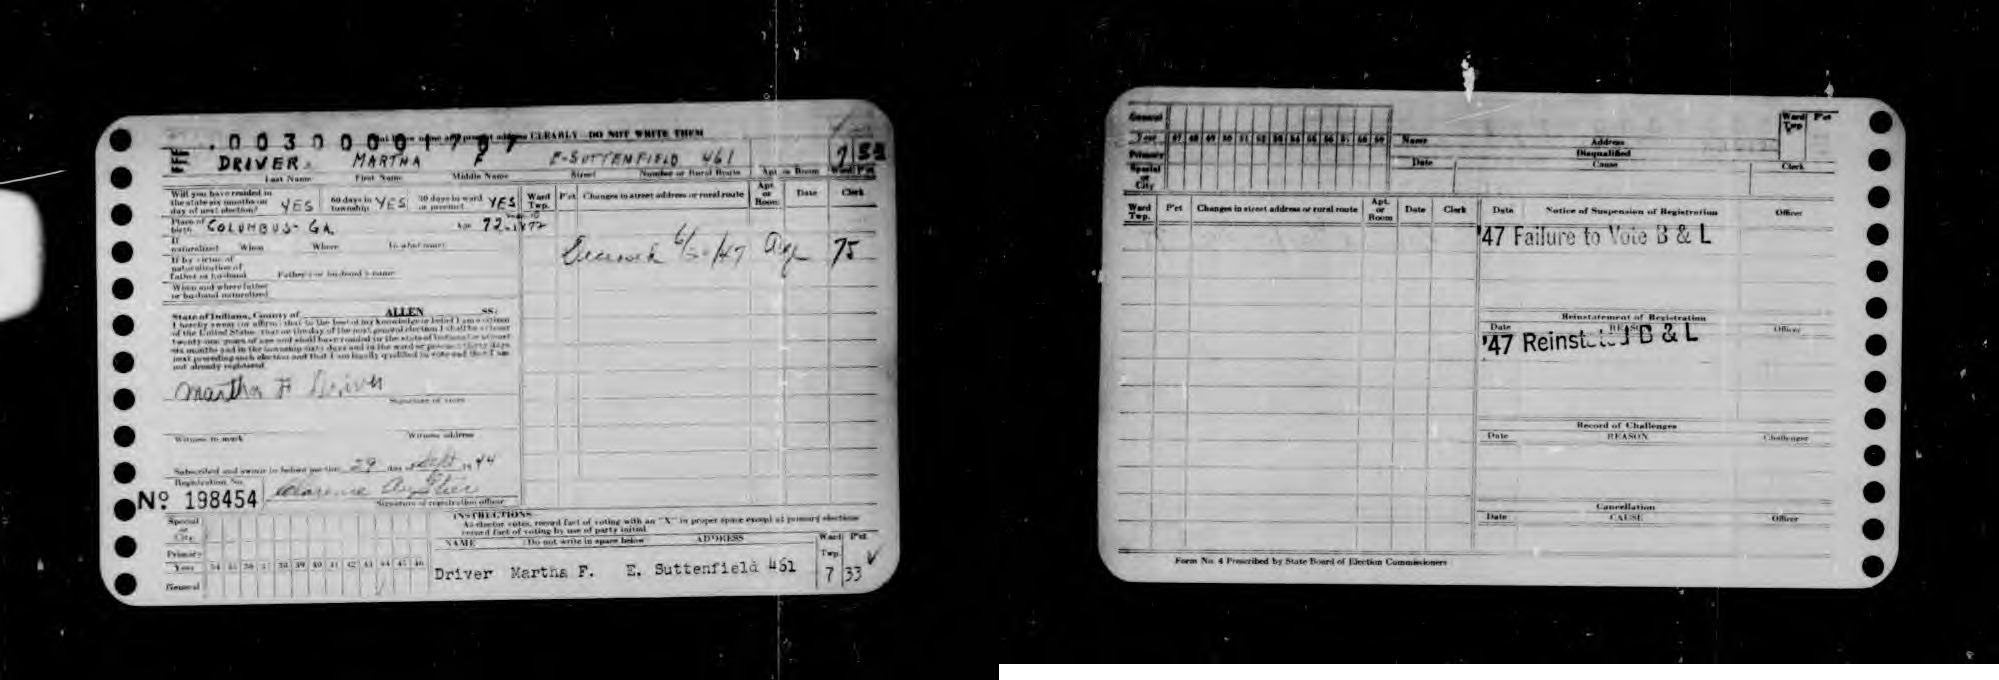 0030001797
CLEARLY DO NOT WRITE THEM
DRIVER MARTHA F E-SUTTENFIELD 461 7 33
Last Name First Name Middle Name Street Number or Rural Route Apt or Room Ward P'ct
Will you have resided in the state six months on day of next election? YES 60 days in township YES 30 days in ward or precinct YES
Ward Twp. P'ct Changes to street address or rural route Apt. or Room Date Clerk
Place of birth COLUMBUS-GA. Age 72
Deceased 6/ /47 Age 75
If naturalized When Where In what court
If by virtue of naturalization of father or husband Father's or husband's name
When and where father or husband naturalized
State of Indiana, County of ALLEN SS:
I hereby swear (or affirm) that to the best of my knowledge or belief I am a citizen
of the United States, that on the day of the next general election I shall be at least
twenty-one years of age and shall have resided in the state of Indiana for at least
six months and in the township sixty days and in the ward or precinct thirty days
next preceding such election and that I am legally qualified to vote and that I am
not already registered
Martha F Driver
Signature of voter
Witness to mark Witness address
Subscribed and sworn to before me this 29 day of Sept 1944
Registration No.
Nº 198454 Clarence
Signature of registration officer
INSTRUCTIONS
As elector votes, record fact of voting with an "X" in proper space except at primary elections
record fact of voting by use of party initial
Special or City
NAME Do not write in space below ADDRESS Ward Twp. P'ct
Primary
Year 34 35 36 37 38 39 40 41 42 43 44 45 46
Driver Martha F. E. Suttenfield 461 7 33
General
General
Year 47 48 49 50 51 52 53 54 55 56 57 58 59
Primary
Special or City
Name Address Ward Twp P'ct
Disqualified
Date Cause Clerk
Ward Twp. P'ct Changes in street address or rural route Apt. or Room Date Clerk
Date Notice of Suspension of Registration Officer
'47 Failure to Vote B & L
Reinstatement of Registration
Date REASON Officer
'47 Reinstated B & L
Record of Challenges
Date REASON Challenger
Cancellation
Date CAUSE Officer
Form No. 4 Prescribed by State Board of Election Commissioners